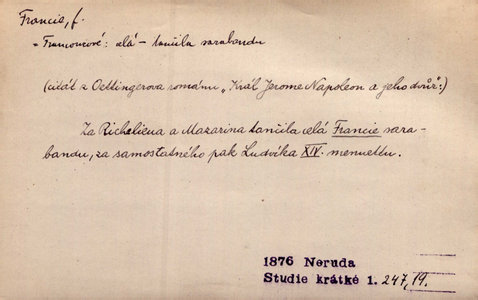 Francie, f.
„Francouzové: celá – tančila sarabandu
(citát z Oettingerova románu „Král Jerome Napoleon a jeho dvůr“:)
Za Richelieua a Mazarina tančila celá Francie sara-
bandu, za samostatného pak Ludvíka XIV. menuettu.
1876 Neruda
Studie krátké 1. 247,19.